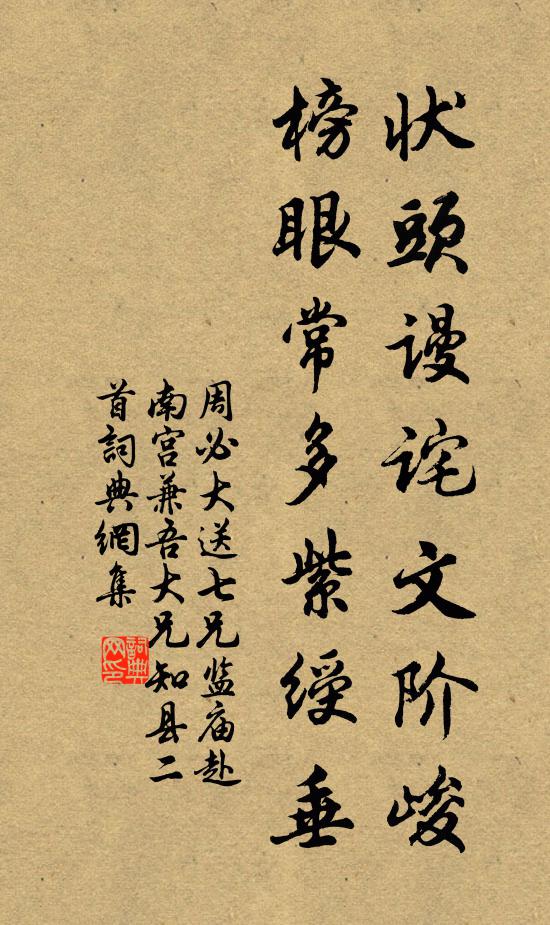 状頭謾诧文阶峻
榜眼常多紫綬垂
周必大送七兄监庙赴
南宫兼吾大兄知县二
首詞典網集
詞典
网印